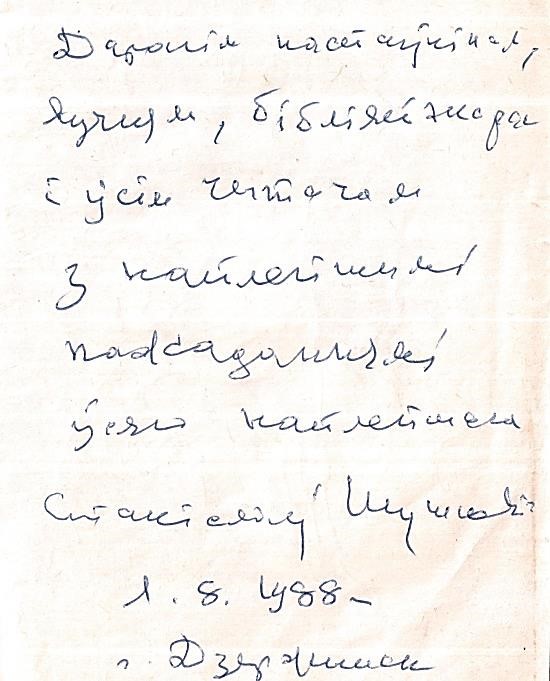 Дарагім настаўнікам,
вучням, бібліятэкарам
і ўсім чытачам
з найлепшымі
пажаданнямі
ўсяго найлепшага
Станіслаў Шушкевіч
1. 8. 1988
г. Дзержинск